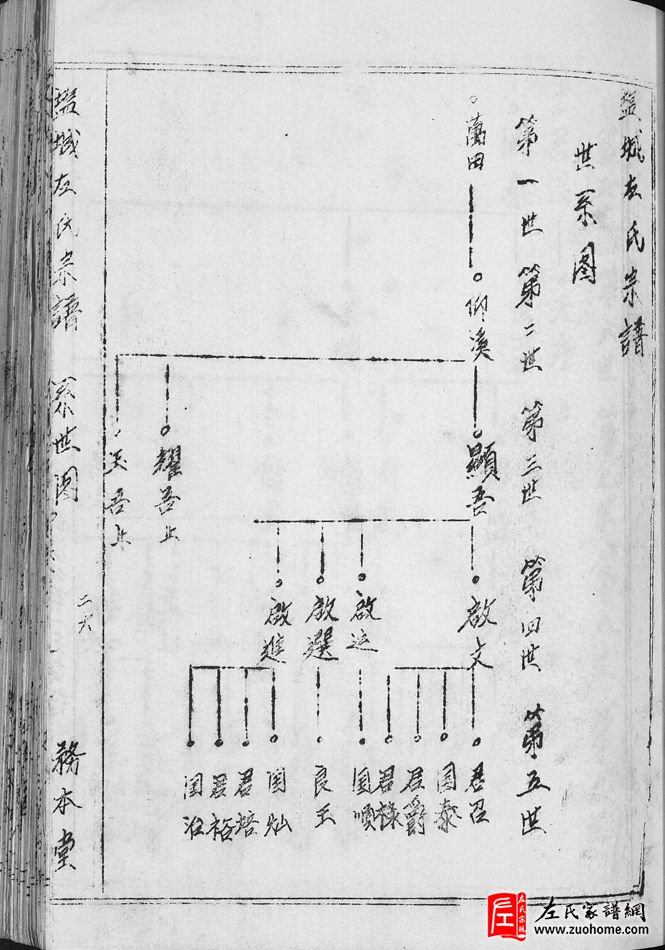 盐城左氏宗譜
世系图
第一世 第二世 第三世 第四世 第五世
萬田
仰溪
顯吾
耀吾止
吾止
啟文
啟运
啟選
啟進
君召
国泰
君爵
君祿
国順
良玉
国灿
君培
君裕
国治
盐城左氏宗譜 系世图 二六 務本堂
左氏家譜
左氏家譜網
www.zuohome.com